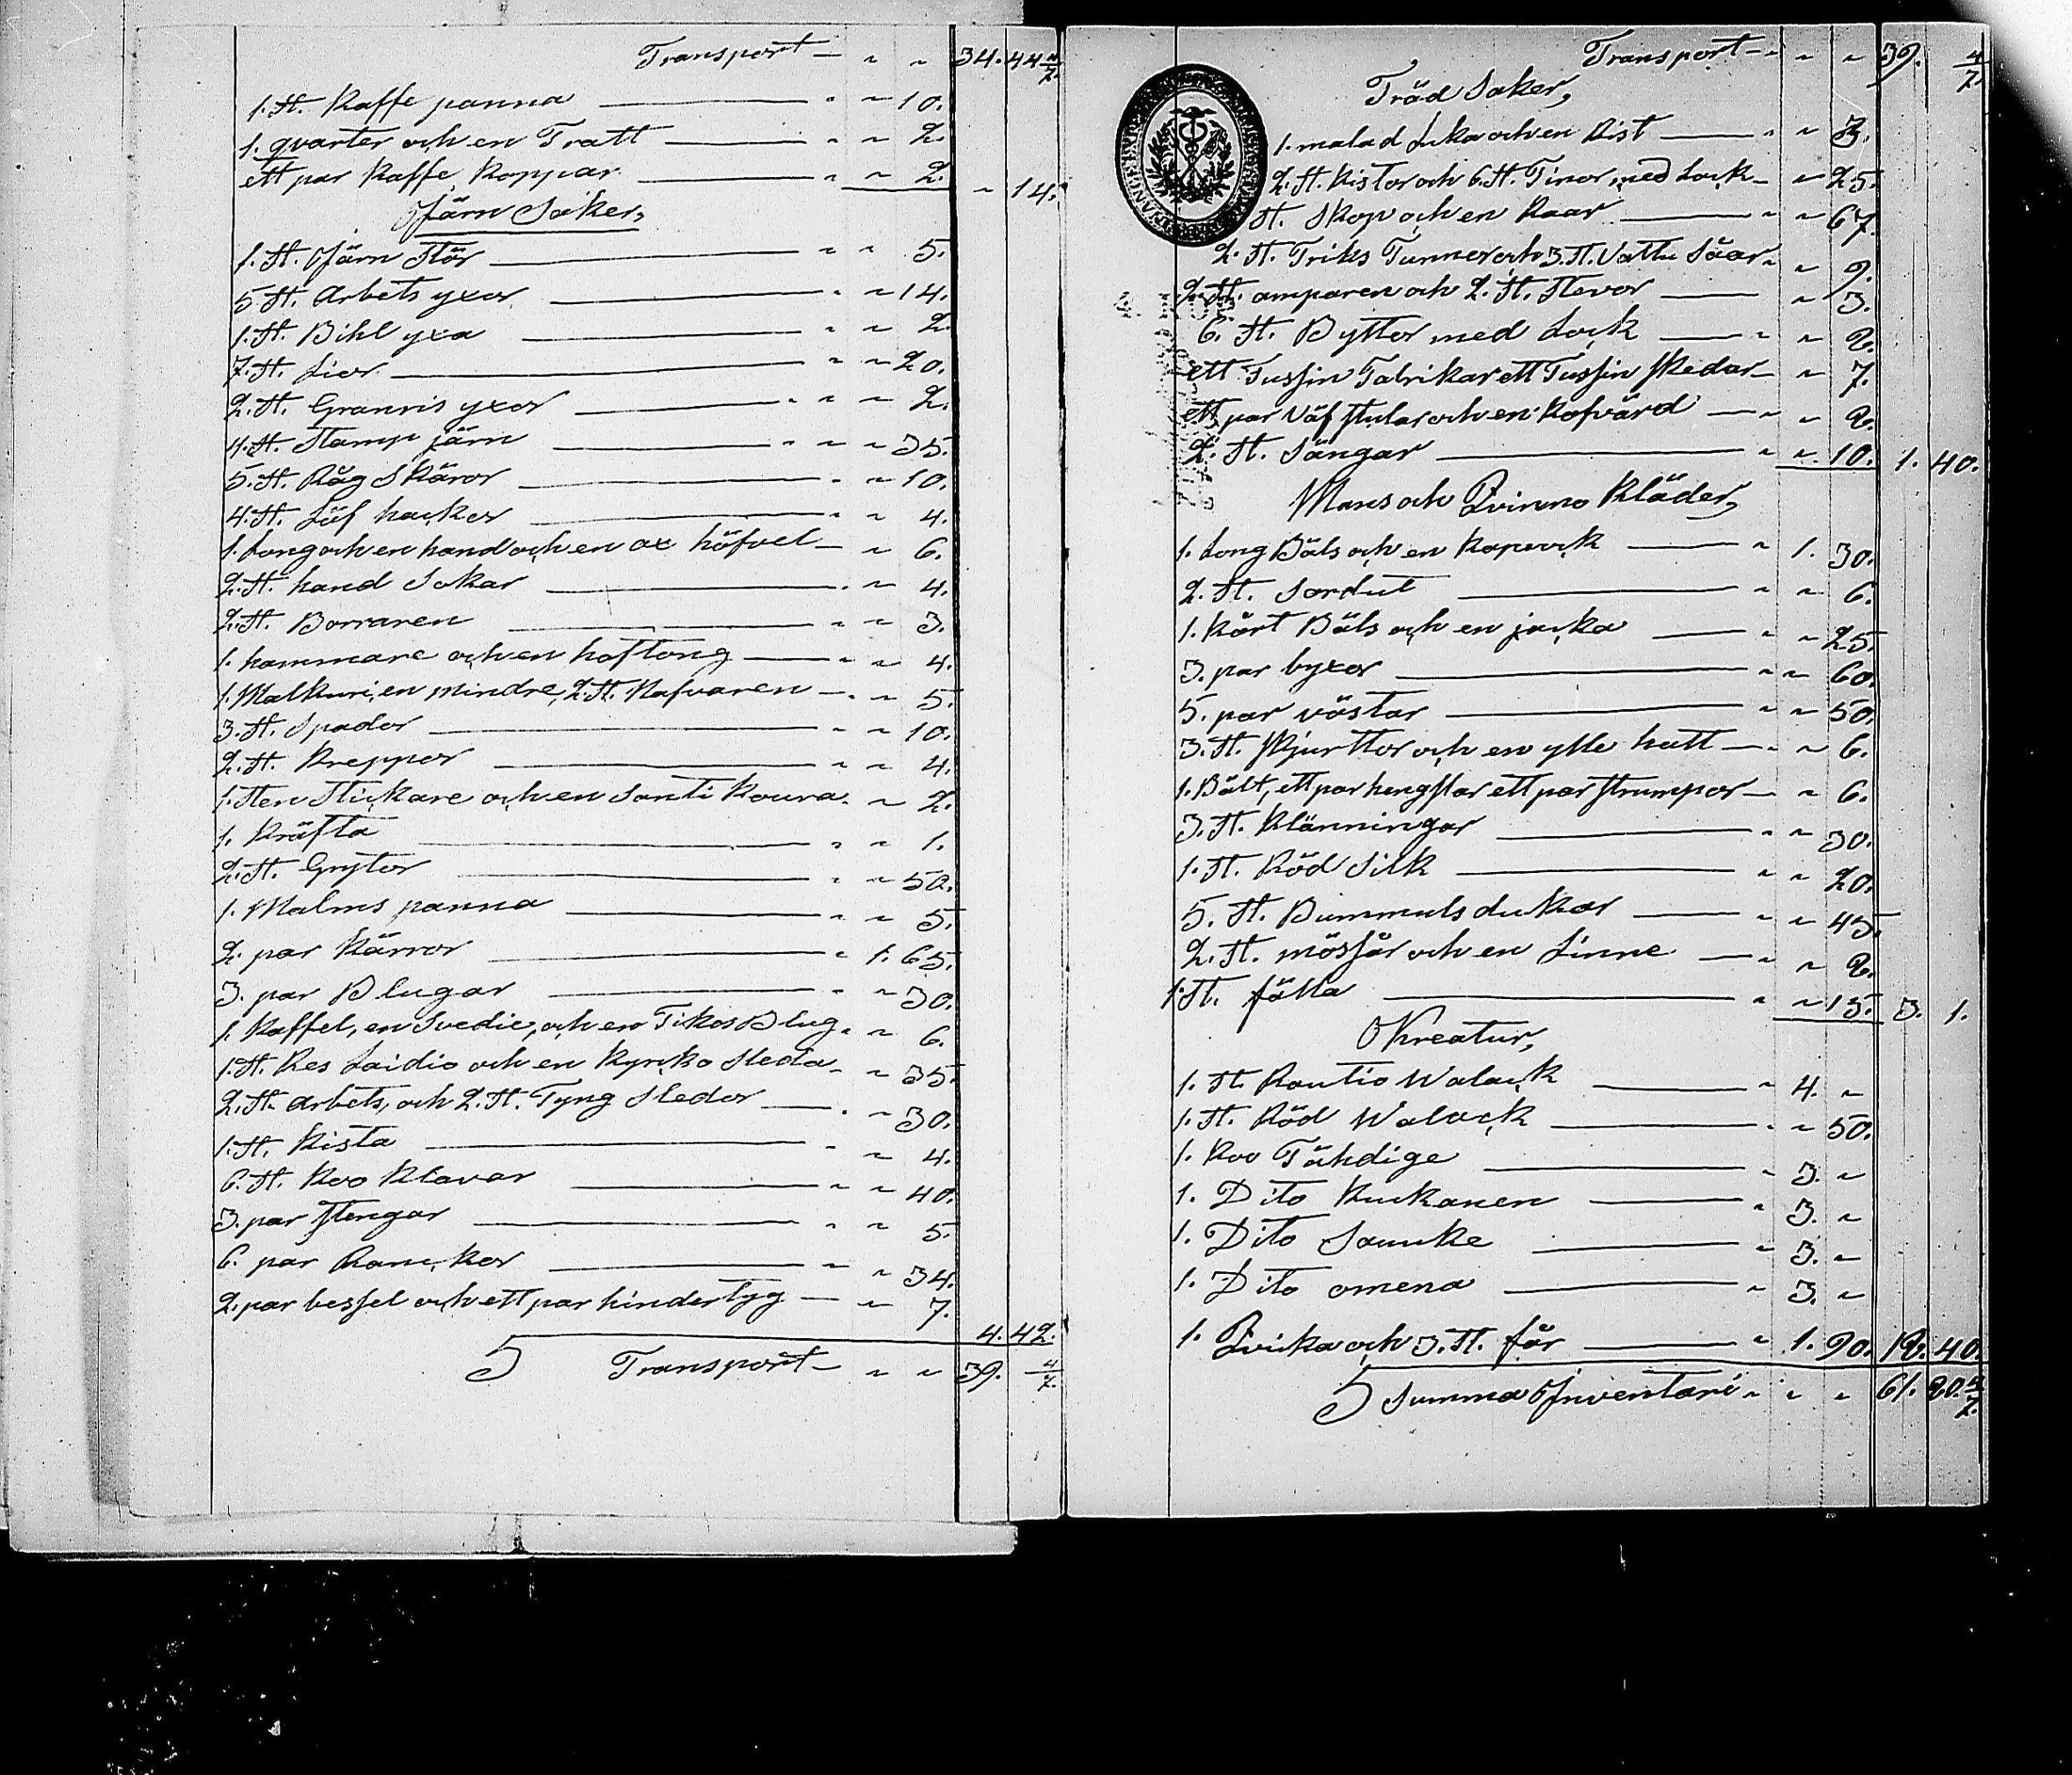 Transport — " " 34. 44 4/7.
1. st. Kaffe panna — " " 10.
1. qvarter och en Tratt — " " 2.
ett par Kaffe Koppar — " " 2. " 14.
Järn Saker,
1. st. Järn Stör — " " 5.
5 st. Arbets yxor — " " 14.
1. st. Bihl yxa — " " 2.
7. st. Lior — " " 20.
2. st. Granris yxor — " " 2.
4. st. Stamp järn — " " 35.
5. st. Råg Skäror — " " 10.
4. st. Löf hacker — " " 4.
1. Long och en hand och en ax höfvel — " 6.
2. st. hand Sokar — " " 4.
2. st. Borraren — " " 3.
1. hammare och en hoftong — " " 4.
1. Malkuri, en mindre, 2. st. Kafvaren — " " 5.
3. st. Spador — " " 10.
2. st. Kreppor — " " 4.
1. Sten Stickare och en Santi Koura " " 2.
1. Kräfta — " " 1.
2. st. Grytor — " " 50.
1. Malms panna — " " 5.
2. par Kärror — " 1. 65.
3. par Blugar — " " 30.
1. Kaffel, en Svedie, och en Tikos Blug " " 6.
1. st. Res Laidio och en Kyrko Sleda " " 35.
2. st. arbets, och 2. st. Tyng Sledor — " " 30.
1. st. Kista — " " 4.
6. st. Koo Klavar — " " 40.
3. par stengar — " " 5.
6. par Ranckor — " " 34.
2. par bessel och ett par hindertyg — " " 7.
4. 42.
Transport — " " 39. 4/7.
Transport — " " 39. 4/7.
Träd Saker,
1. malad Luka och en Rist — " " 3.
2. st. Kistor och 6. st. Tinor med Lock — " 25.
st. Skop och en Kaar — " " 67.
2. st. Triks Tunnor och 3. st. Vattu Såar " " 9.
2. st. amparen och 2. st. Stevor — " 3.
6. st. Byttor med Lock — " " 2.
ett Tussin Talrikar ett Tussin skedar — " 7.
ett par Väfstular och en Kofvård — " " 2.
2. st. Sängar — " " 10. 1. 40.
Mans och Qvinno Kläder,
1. Long Bäls och en Kaprock — " 1. 30.
2. st. Sordut — " " 6.
1. Kårt Bäls och en jacka — " " 25.
3. par byxor — " " 60.
5. par västar — " " 50.
3. st. skjurttor och en ylle hatt — " " 6.
1. Bält, ett par hengslar ett par strumpor — " 6.
3. st. Klänningar — " " 30.
1. st. Röd Silk — " " 20.
5. st. Bummuls dukar — " " 45.
2. st. mössår och en Linne — " " 2.
1. st. fälla — " " 15. 3. 1.
Kreatur,
1. st. Rautio Walack — " 4. "
1. st. Röd Walack — " " 50.
1. Koo Tähdige — " 3. "
1. Dito Kuckanen — " 3. "
1. Dito Saunke — " 3. "
1. Dito omena — " 3. "
1. Qvicka och 3. st. får — " 1. 90. 18. 40.
Summa Inventari " " " 61. 80. 4/7.